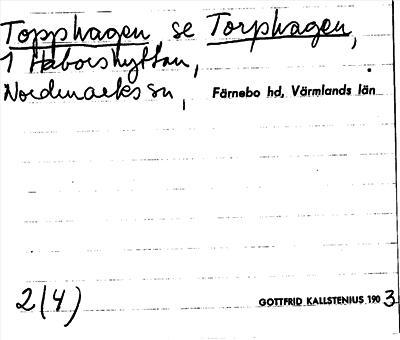 Topphagen, se Torphagen,
1 Haborshyttan,
Nordmarks sn, Färnebo hd, Värmlands län
2(4) GOTTFRID KALLSTENIUS 1903